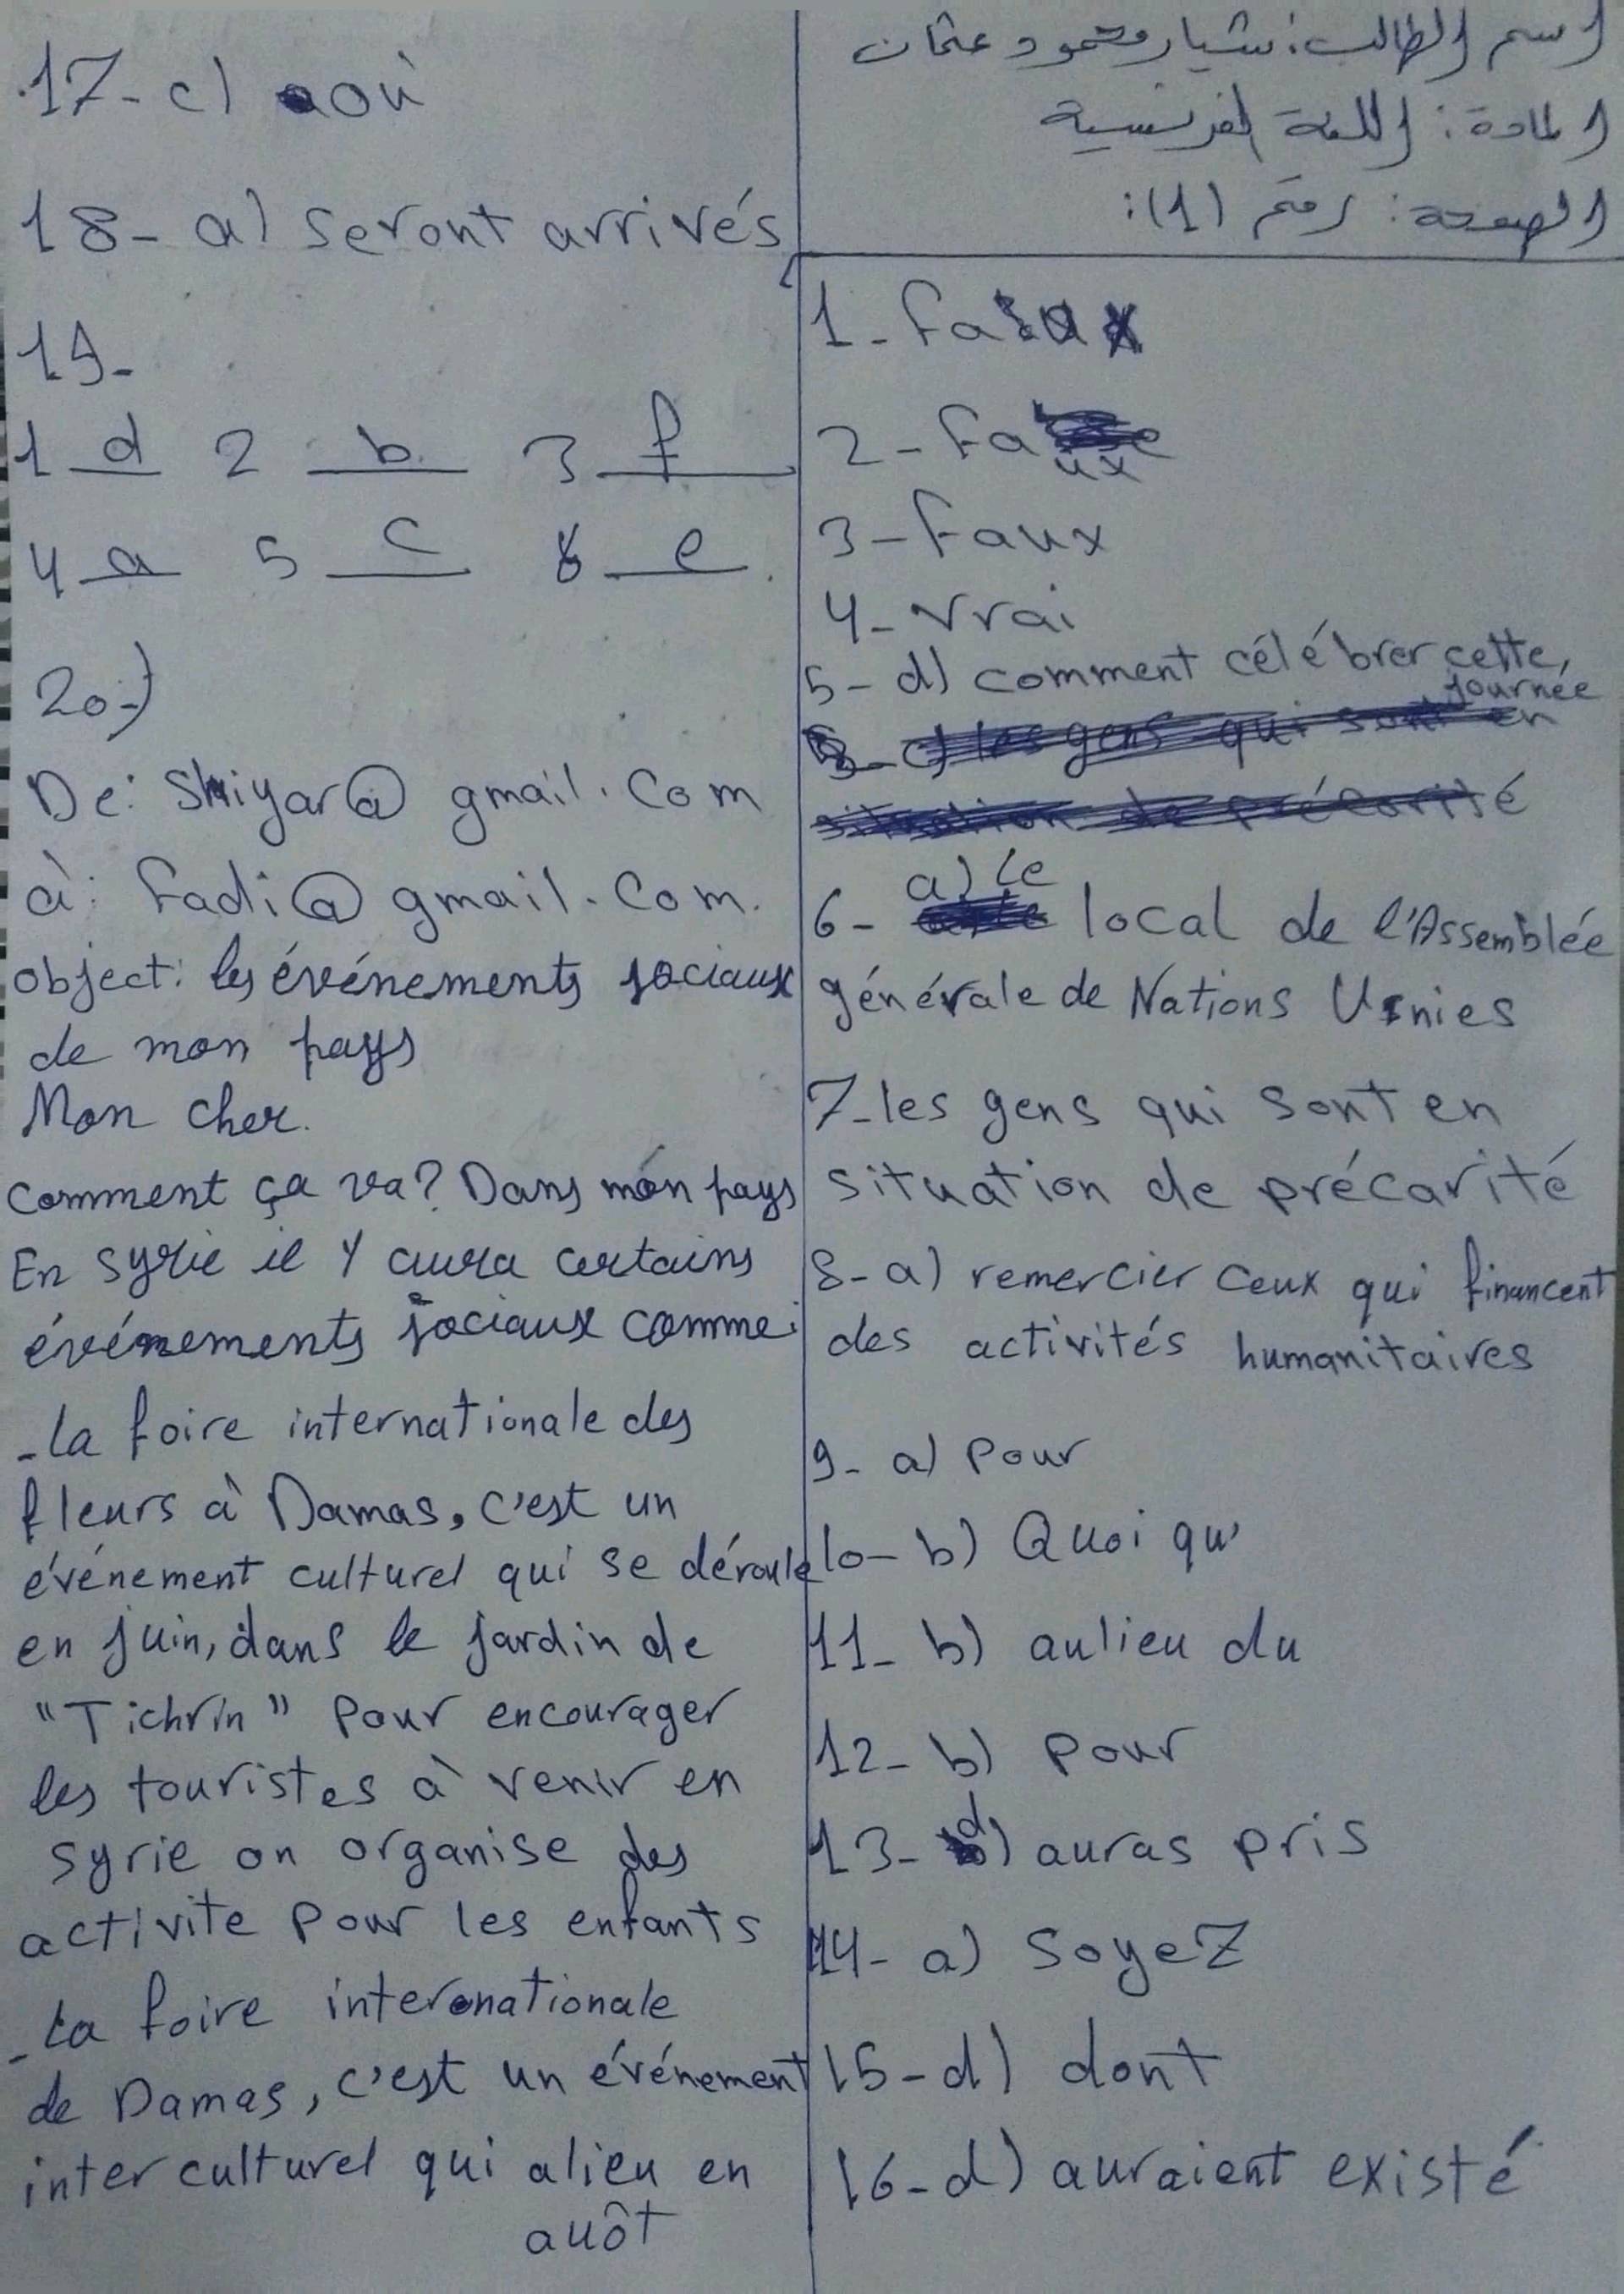 اسم الطالب: شيار محمود عثمان
المادة: اللغة الفرنسية
الصفحة: رقم (1):
1- Faux
2- Faux
3- Faux
4- Vrai
5- d) comment célébrer cette,
journée
6- a) Le local de l'Assemblée
générale de Nations Unies
7- les gens qui sont en
situation de précarité
8- a) remercier ceux qui financent
des activités humanitaires
9- a) Pour
10- b) Quoi qu'
11- b) aulieu du
12- b) pour
13- d) auras pris
14- a) soyez
15- d) dont
16- d) auraient existé
17- c) où
18- a) seront arrivés
19-
1 d 2 b 3 f
4 a 5 c 6 e
20-)
De: Shiyar@gmail.com
à: Fadi@gmail.com.
object: les événements sociaux
de mon pays
Mon cher.
comment ça va? Dans mon pays
En syrie il y aura certains
événements sociaux comme:
- la foire internationale des
fleurs à Damas, c'est un
événement culturel qui se déroule
en juin, dans le jardin de
"Tichrin" pour encourager
les touristes à venir en
syrie on organise des
activite pour les enfants
- La foire internationale
de Damas, c'est un événement
inter culturel qui alieu en
auôt